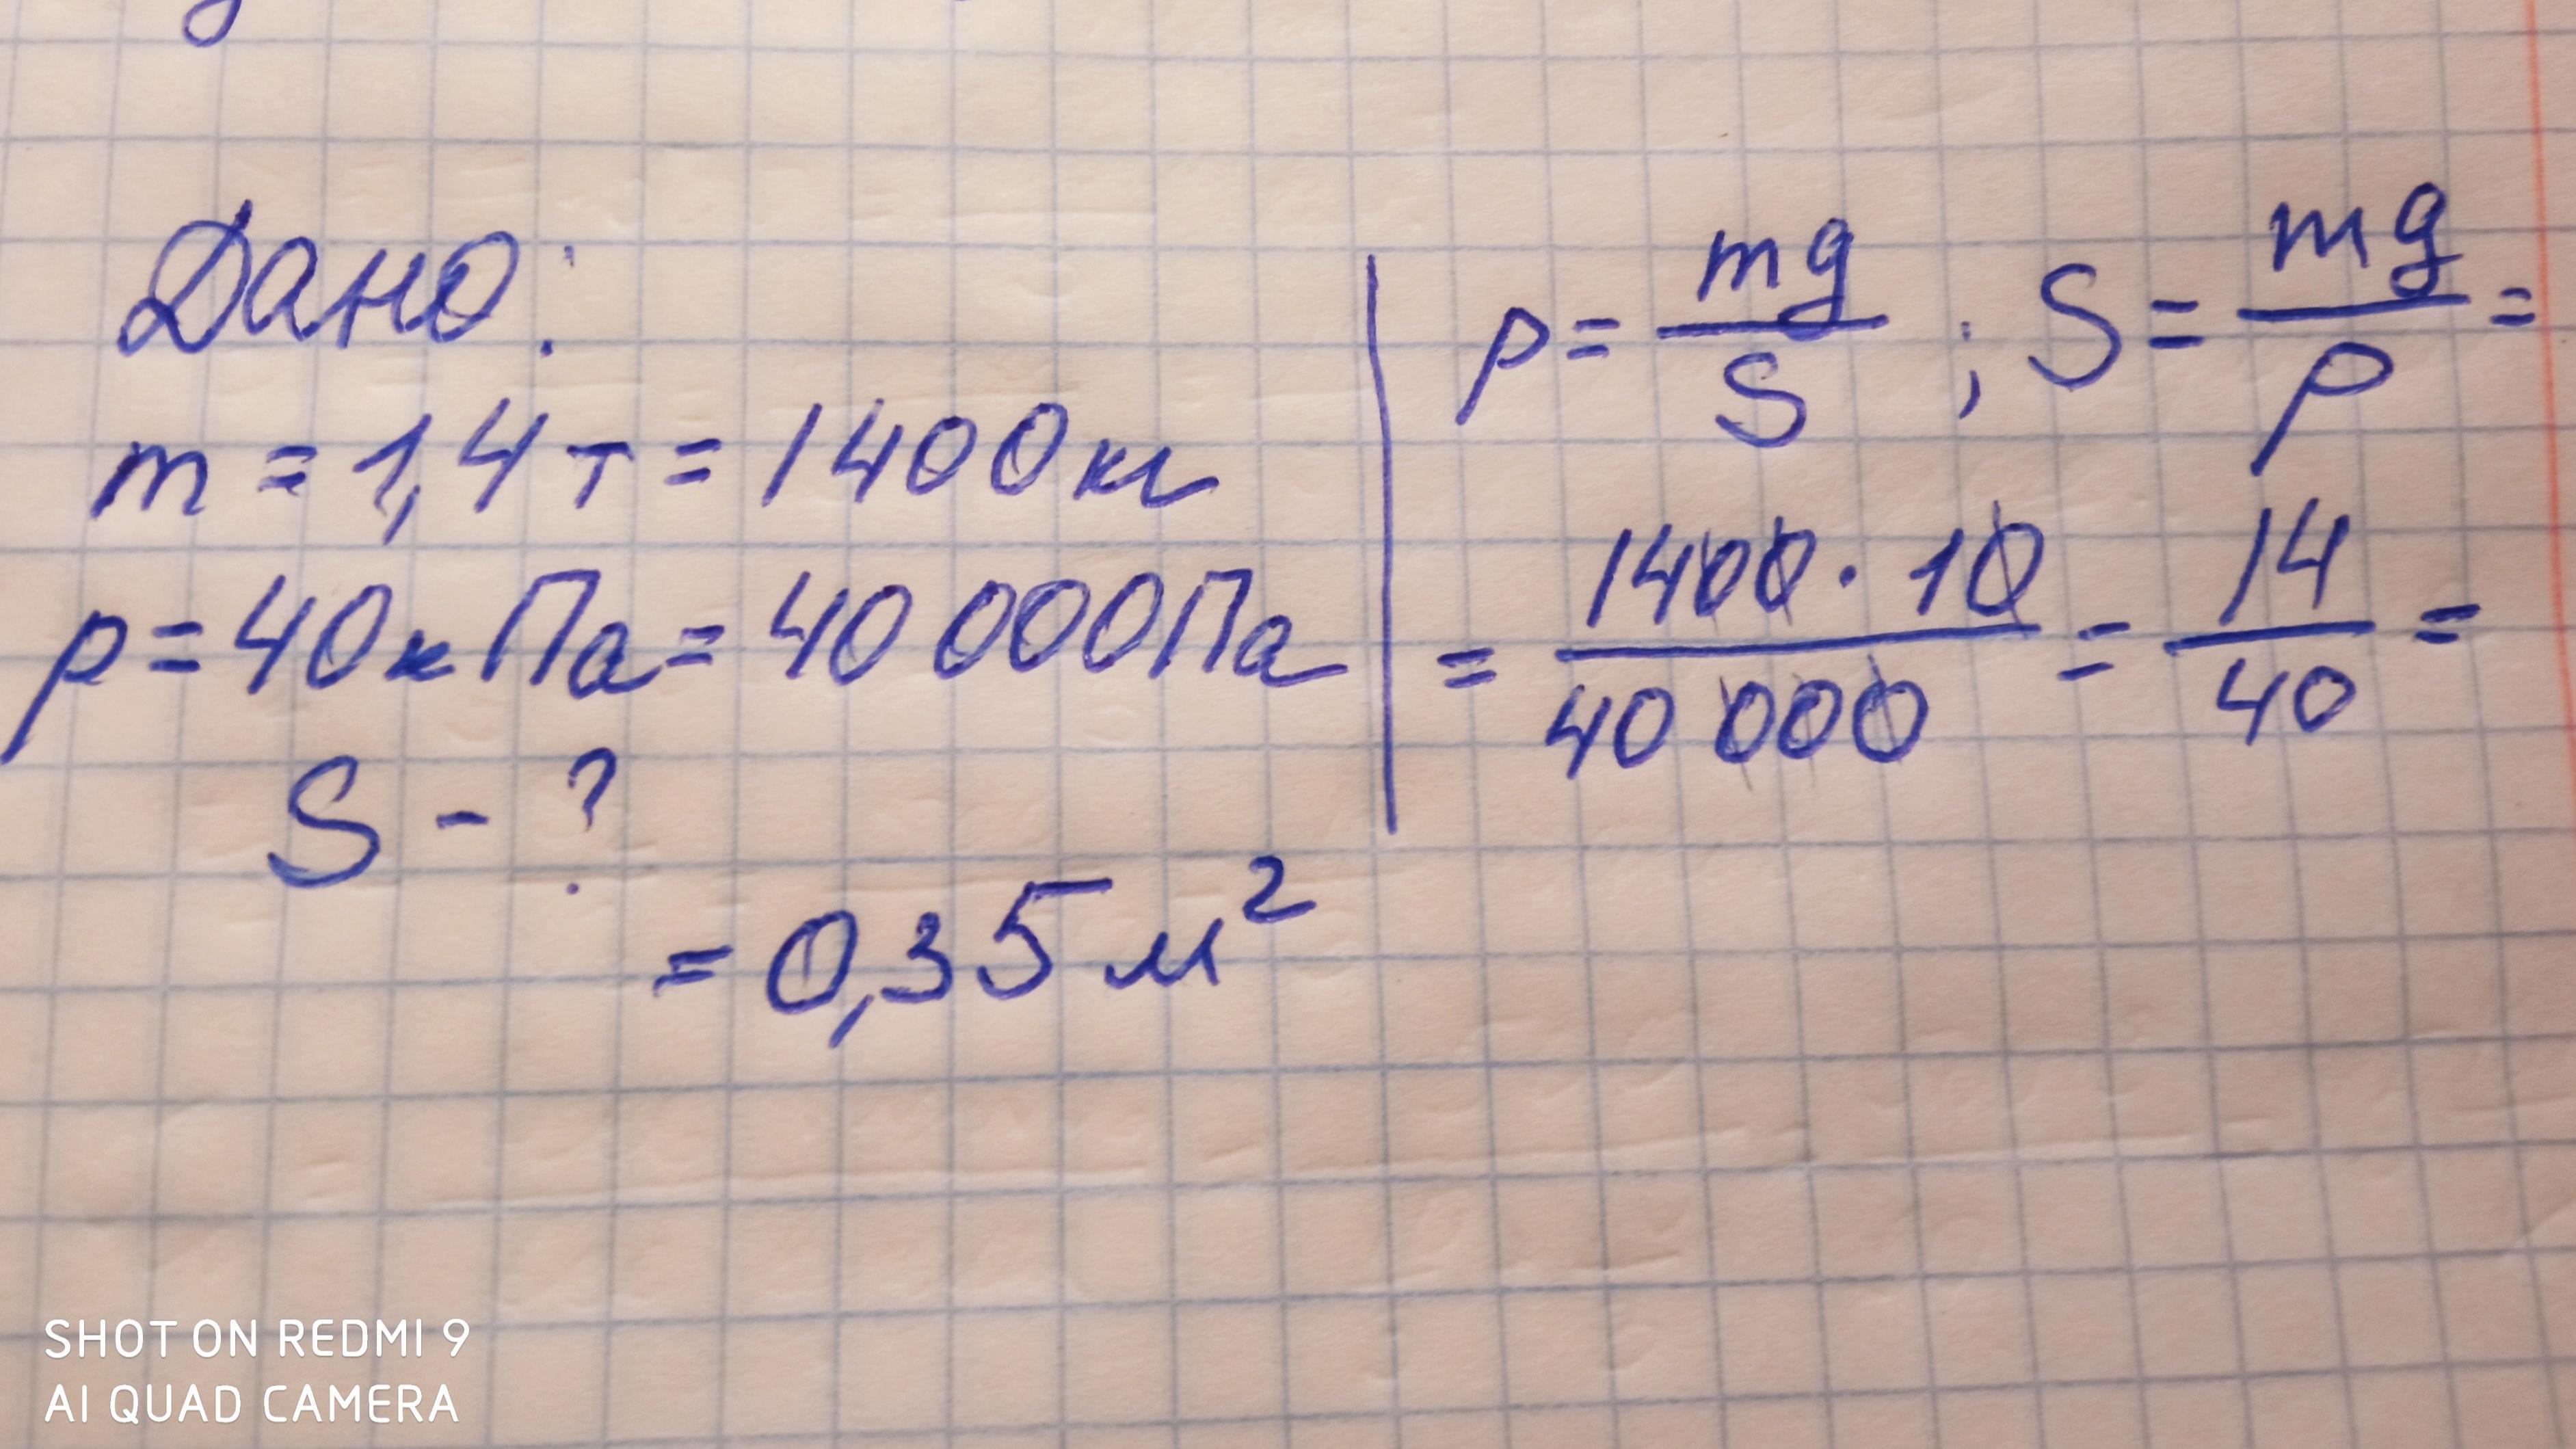 Дано:
m = 1,4 т = 1400 кг
p = 40 кПа = 40 000 Па
S - ?
p = mg / S ; S = mg / p =
= 1400 · 10 / 40 000 = 14 / 40 =
= 0,35 м²
SHOT ON REDMI 9
AI QUAD CAMERA